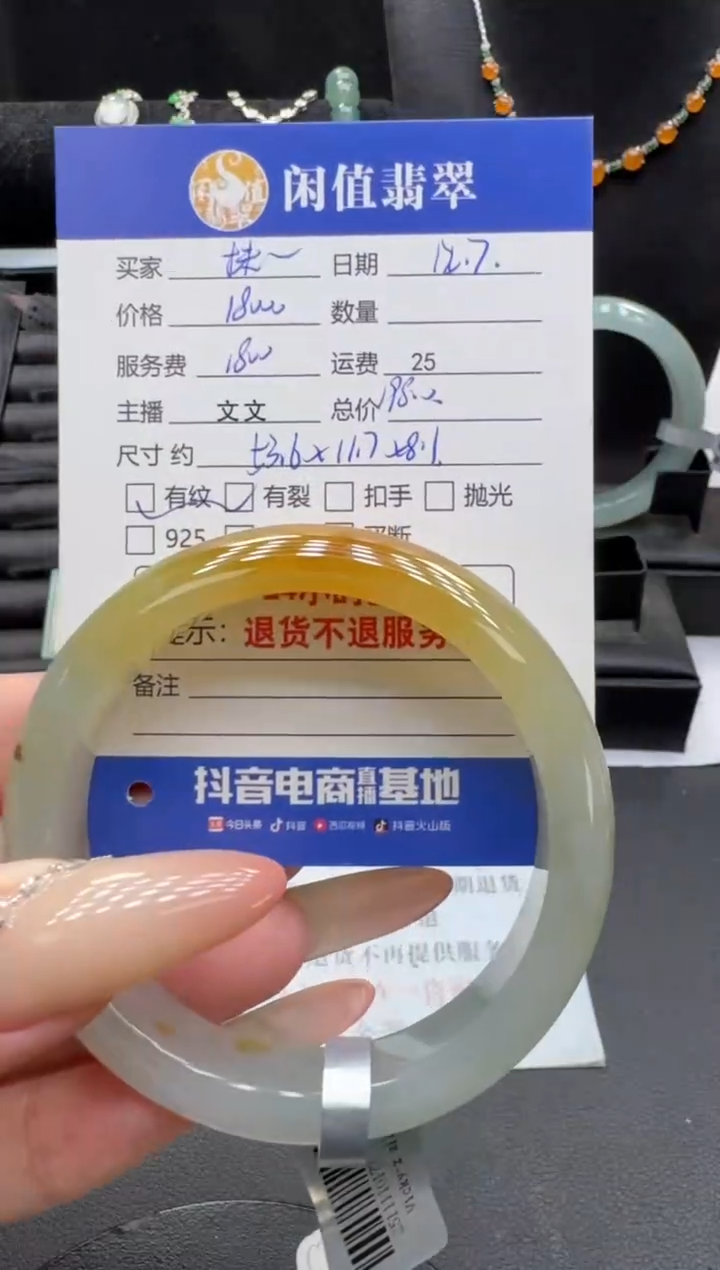 闲值翡翠
买家 日期 12.7.
价格 18000 数量
服务费 1800 运费 25
主播 文文 总价
尺寸约 53.6×11.7×8.1
有纹 有裂 扣手 抛光
925
提示：退货不退服务
备注
抖音电商直播基地
今日头条 抖音 西瓜视频 抖音火山版
期退货
货不再提供服务